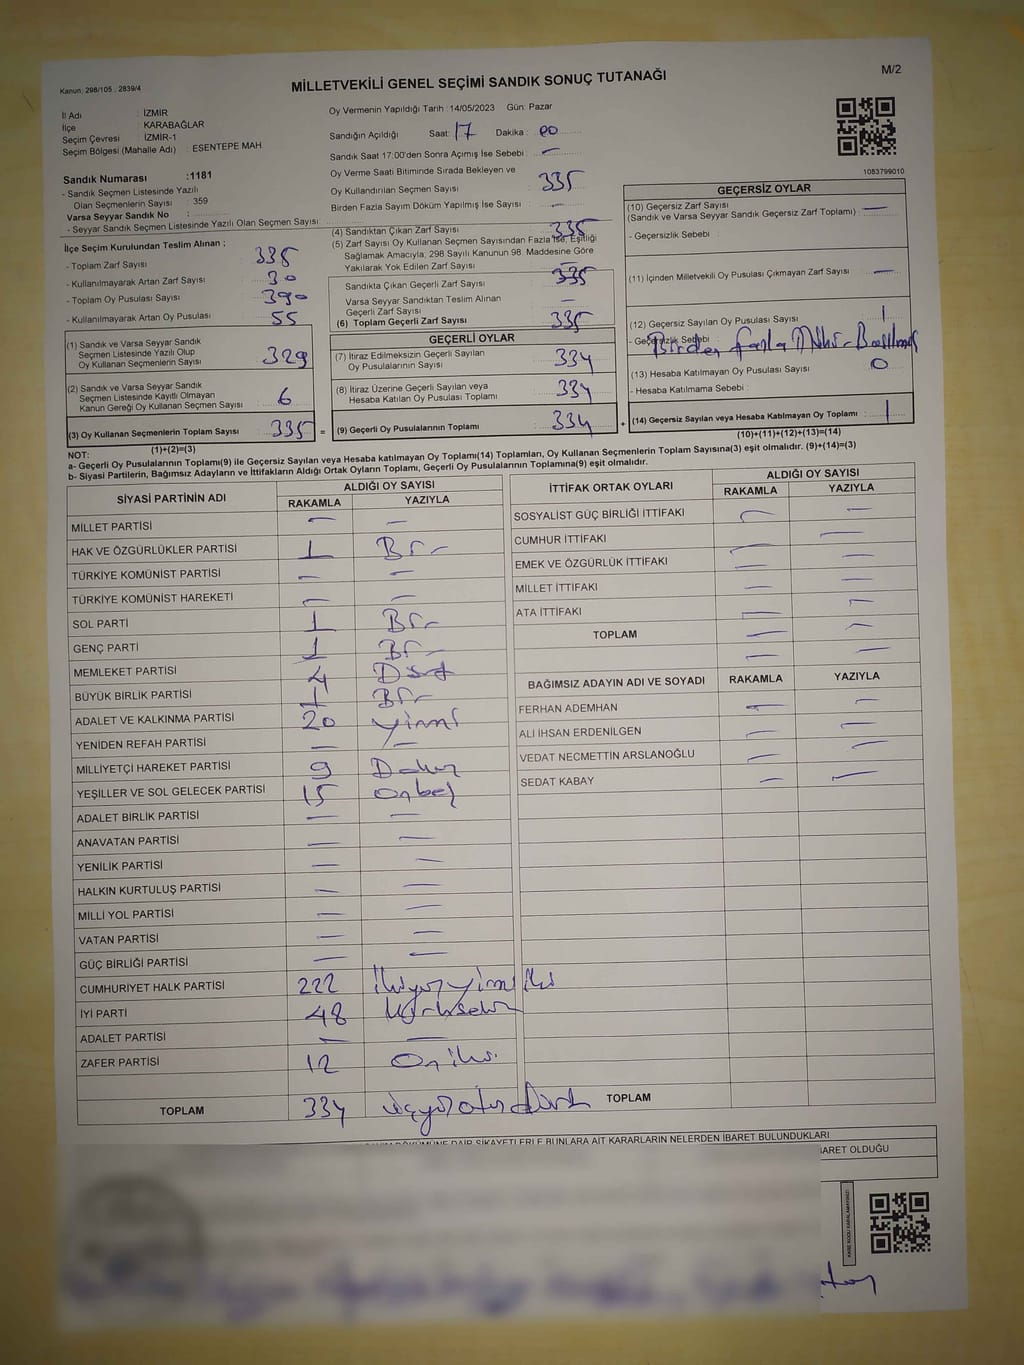 Kanun; 298/105 , 2839/4
MİLLETVEKİLİ GENEL SEÇİMİ SANDIK SONUÇ TUTANAĞI
M/2
İl Adı : İZMİR
İlçe : KARABAĞLAR
Seçim Çevresi : İZMİR-1
Seçim Bölgesi (Mahalle Adı) : ESENTEPE MAH.
Sandık Numarası :1181
- Sandık Seçmen Listesinde Yazılı
Olan Seçmenlerin Sayısı : 359
Varsa Seyyar Sandık No :
- Seyyar Sandık Seçmen Listesinde Yazılı Olan Seçmen Sayısı:
Oy Vermenin Yapıldığı Tarih : 14/05/2023 Gün: Pazar
Sandığın Açıldığı Saat: 17 Dakika : 00
Sandık Saat 17:00'den Sonra Açımış İse Sebebi : —
Oy Verme Saati Bitiminde Sırada Bekleyen ve
Oy Kullandırılan Seçmen Sayısı : 335
Birden Fazla Sayım Döküm Yapılmış İse Sayısı : —
1083799010
İlçe Seçim Kurulundan Teslim Alınan ;
- Toplam Zarf Sayısı : 335
- Kullanılmayarak Artan Zarf Sayısı : 30
- Toplam Oy Pusulası Sayısı : 390
- Kullanılmayarak Artan Oy Pusulası : 55
(1) Sandık ve Varsa Seyyar Sandık
Seçmen Listesinde Yazılı Olup
Oy Kullanan Seçmenlerin Sayısı : 329
(2) Sandık ve Varsa Seyyar Sandık
Seçmen Listesinde Kayıtlı Olmayan
Kanun Gereği Oy Kullanan Seçmen Sayısı : 6
(3) Oy Kullanan Seçmenlerin Toplam Sayısı : 335 =
(1)+(2)=(3)
(4) Sandıktan Çıkan Zarf Sayısı : 335
(5) Zarf Sayısı Oy Kullanan Seçmen Sayısından Fazla İse, Eşitliği
Sağlamak Amacıyla, 298 Sayılı Kanunun 98. Maddesine Göre
Yakılarak Yok Edilen Zarf Sayısı : —
Sandıkta Çıkan Geçerli Zarf Sayısı : 335
Varsa Seyyar Sandıktan Teslim Alınan
Geçerli Zarf Sayısı : —
(6) Toplam Geçerli Zarf Sayısı : 335
GEÇERLİ OYLAR
(7) İtiraz Edilmeksizin Geçerli Sayılan
Oy Pusulalarının Sayısı : 334
(8) İtiraz Üzerine Geçerli Sayılan veya
Hesaba Katılan Oy Pusulası Toplamı : 334
(9) Geçerli Oy Pusulalarının Toplamı : 334 +
GEÇERSİZ OYLAR
(10) Geçersiz Zarf Sayısı
(Sandık ve Varsa Seyyar Sandık Geçersiz Zarf Toplamı) : —
- Geçersizlik Sebebi :
(11) İçinden Milletvekili Oy Pusulası Çıkmayan Zarf Sayısı : —
(12) Geçersiz Sayılan Oy Pusulası Sayısı : 1
- Geçersizlik Sebebi : Birden fazla
(13) Hesaba Katılmayan Oy Pusulası Sayısı : 0
- Hesaba Katılmama Sebebi :
(14) Geçersiz Sayılan veya Hesaba Katılmayan Oy Toplamı : 1
(10)+(11)+(12)+(13)=(14)
NOT:
a- Geçerli Oy Pusulalarının Toplamı(9) ile Geçersiz Sayılan veya Hesaba katılmayan Oy Toplamı(14) Toplamları, Oy Kullanan Seçmenlerin Toplam Sayısına(3) eşit olmalıdır. (9)+(14)=(3)
b- Siyasi Partilerin, Bağımsız Adayların ve İttifakların Aldığı Ortak Oyların Toplamı, Geçerli Oy Pusulalarının Toplamına(9) eşit olmalıdır.
SİYASİ PARTİNİN ADI ALDIĞI OY SAYISI
RAKAMLA YAZIYLA
MİLLET PARTİSİ — —
HAK VE ÖZGÜRLÜKLER PARTİSİ 1 Bir
TÜRKİYE KOMÜNİST PARTİSİ — —
TÜRKİYE KOMÜNİST HAREKETİ — —
SOL PARTİ 1 Bir
GENÇ PARTİ 1 Bir
MEMLEKET PARTİSİ 4 Dört
BÜYÜK BİRLİK PARTİSİ 1 Bir
ADALET VE KALKINMA PARTİSİ 20 Yirmi
YENİDEN REFAH PARTİSİ — —
MİLLİYETÇİ HAREKET PARTİSİ 9 Dokuz
YEŞİLLER VE SOL GELECEK PARTİSİ 15 Onbeş
ADALET BİRLİK PARTİSİ — —
ANAVATAN PARTİSİ — —
YENİLİK PARTİSİ — —
HALKIN KURTULUŞ PARTİSİ — —
MİLLİ YOL PARTİSİ — —
VATAN PARTİSİ — —
GÜÇ BİRLİĞİ PARTİSİ — —
CUMHURİYET HALK PARTİSİ 222 İkiyüzyirmiiki
İYİ PARTİ 48 Kırksekiz
ADALET PARTİSİ — —
ZAFER PARTİSİ 12 Oniki
TOPLAM 334 üçyüzotuzdört
İTTİFAK ORTAK OYLARI ALDIĞI OY SAYISI
RAKAMLA YAZIYLA
SOSYALİST GÜÇ BİRLİĞİ İTTİFAKI — —
CUMHUR İTTİFAKI — —
EMEK VE ÖZGÜRLÜK İTTİFAKI — —
MİLLET İTTİFAKI — —
ATA İTTİFAKI — —
TOPLAM — —
BAĞIMSIZ ADAYIN ADI VE SOYADI RAKAMLA YAZIYLA
FERHAN ADEMHAN — —
ALİ İHSAN ERDENİLGEN — —
VEDAT NECMETTİN ARSLANOĞLU — —
SEDAT KABAY — —
TOPLAM
DÖKÜMÜNE DAİR ŞİKAYETLERLE BUNLARA AİT KARARLARIN NELERDEN İBARET BULUNDUKLARI
İBARET OLDUĞU